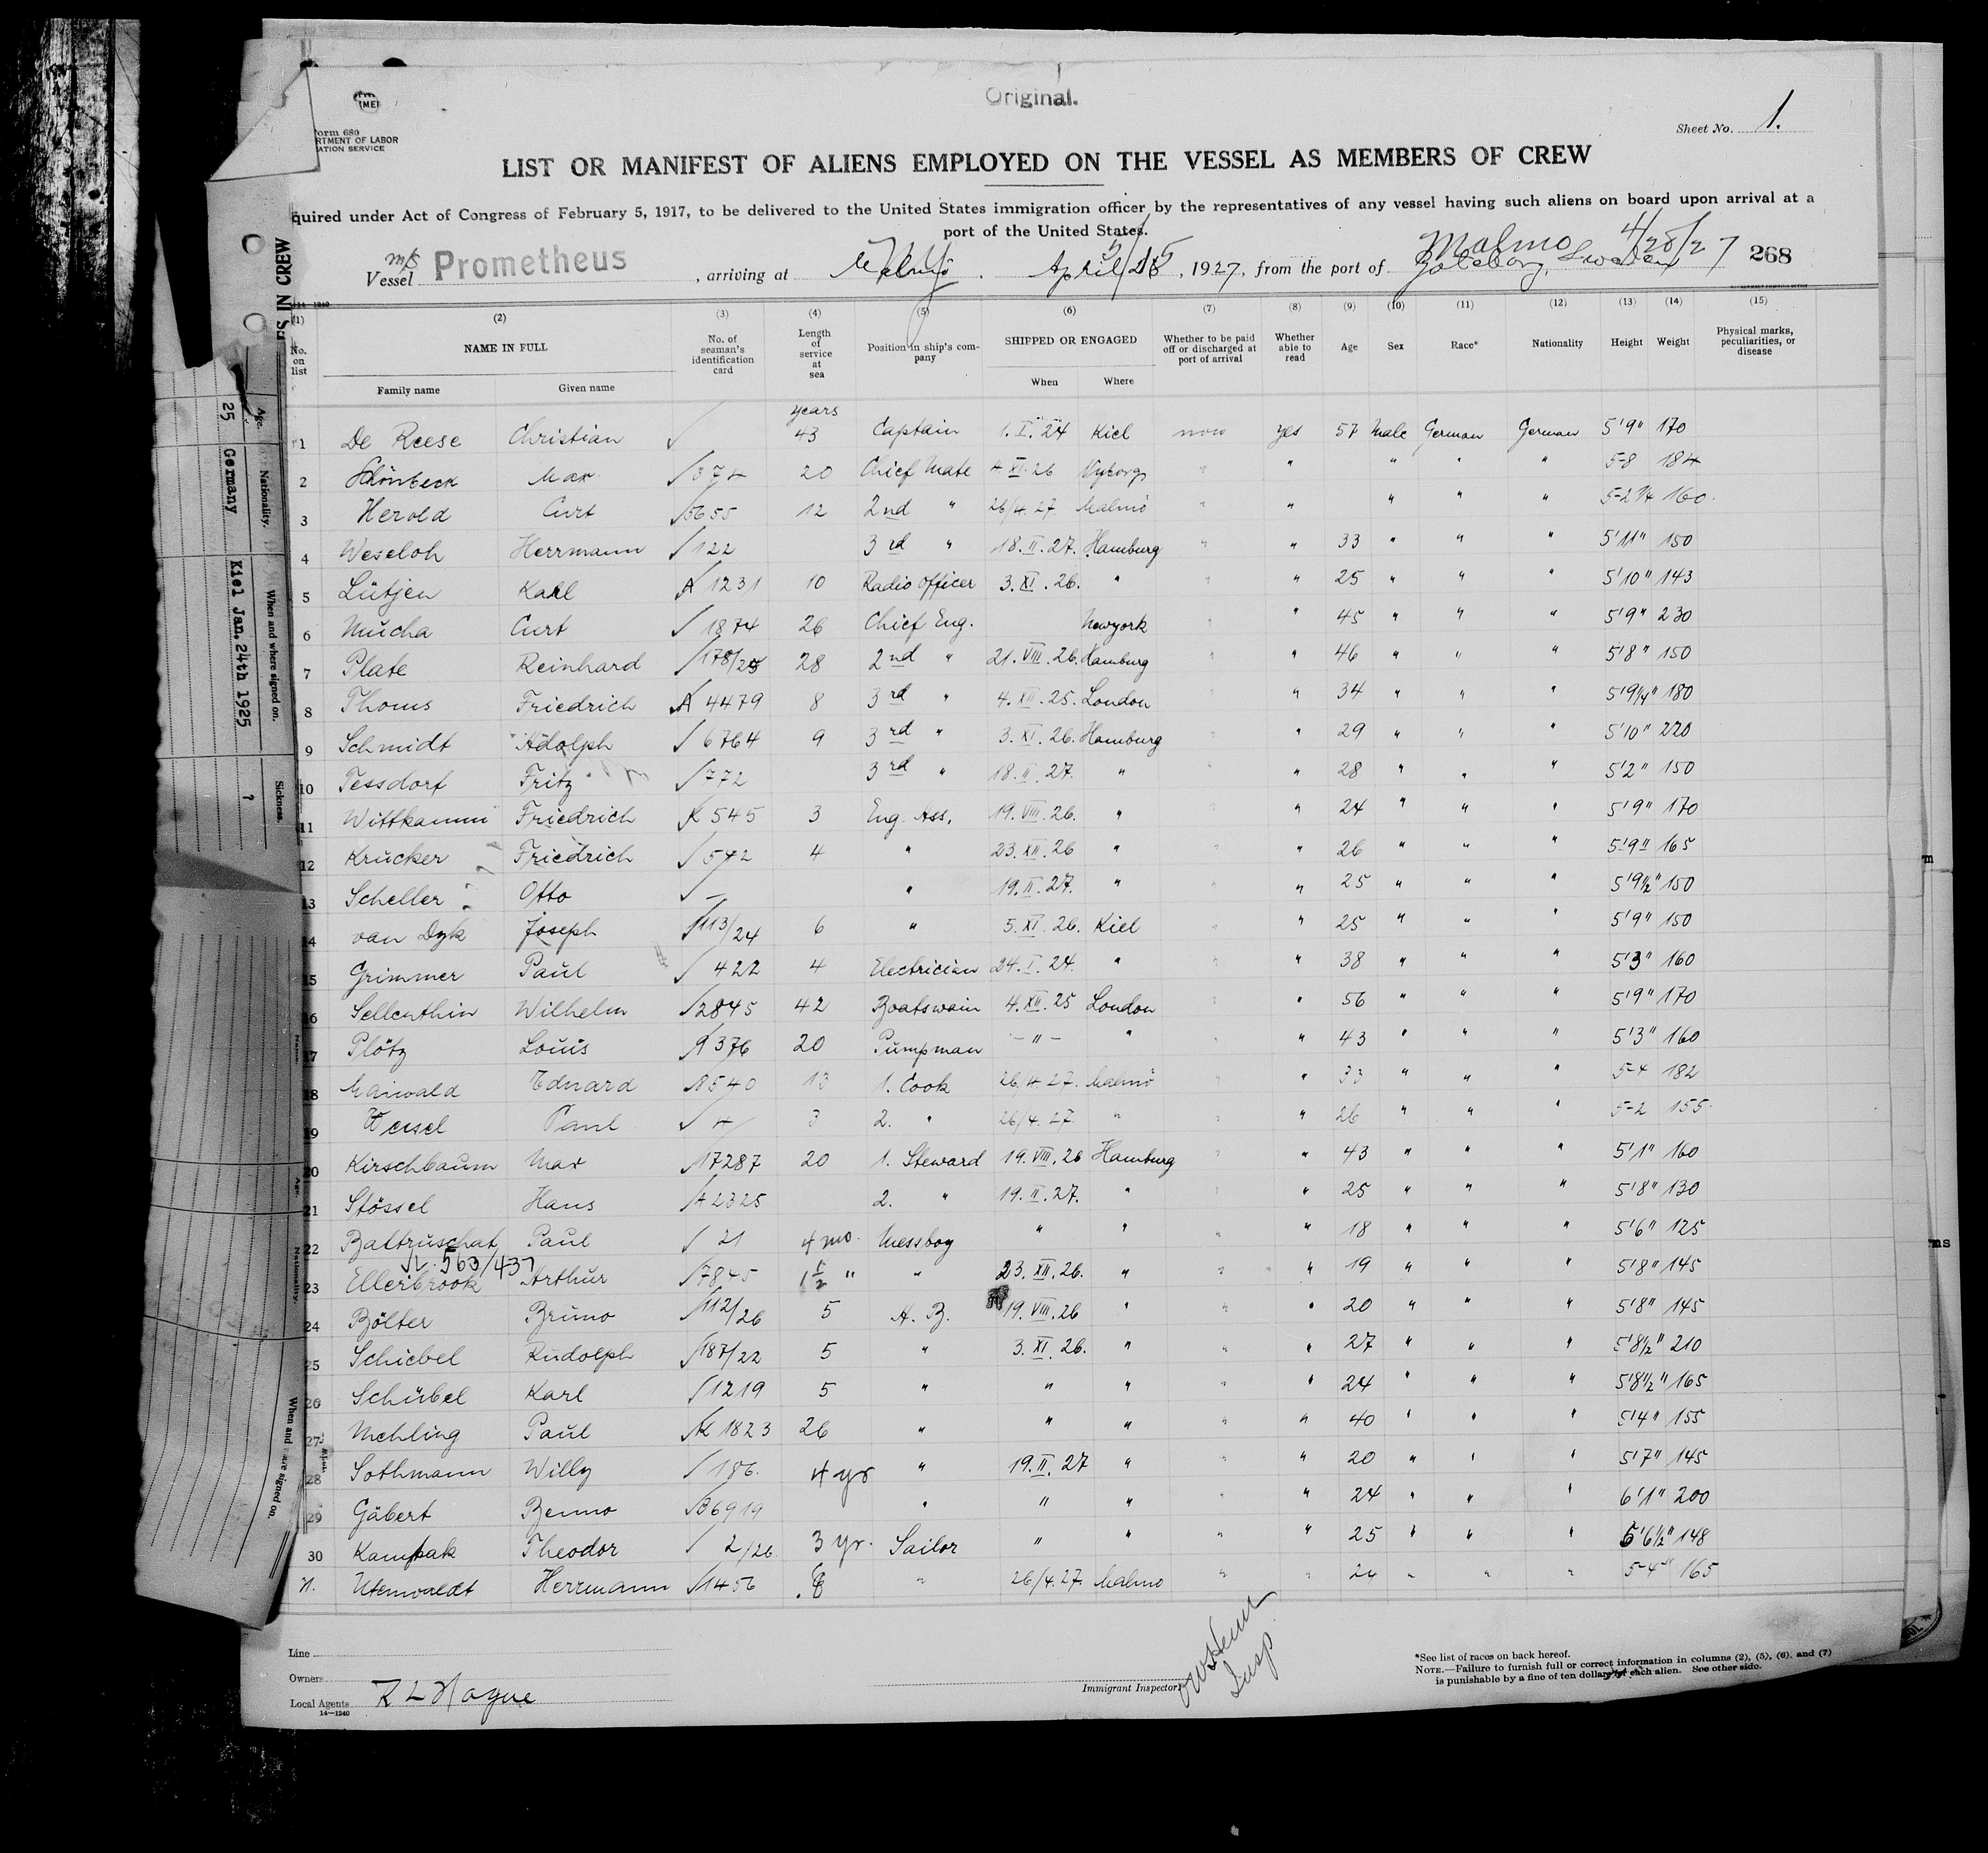 Original.
Form 680
RTMENT OF LABOR
ATION SERVICE
Sheet No. 1.
LIST OR MANIFEST OF ALIENS EMPLOYED ON THE VESSEL AS MEMBERS OF CREW
quired under Act of Congress of February 5, 1917, to be delivered to the United States immigration officer by the representatives of any vessel having such aliens on board upon arrival at a
port of the United States.
Malmo 4/28/27
m/s Vessel Prometheus , arriving at April , 1927, from the port of Göteborg, Sweden 268
14—1240
(1) (2) (3) (4) (5) (6) (7) (8) (9) (10) (11) (12) (13) (14) (15)
No. on list NAME IN FULL No. of seaman's identification card Length of service at sea Position in ship's company SHIPPED OR ENGAGED Whether to be paid off or discharged at port of arrival Whether able to read Age Sex Race* Nationality Height Weight Physical marks, peculiarities, or disease
Family name Given name When Where
years
1 De Reese Christian 43 Captain 1. I. 24 Kiel now yes 57 Male German German 5'9" 170
2 Schönbeck Max 374 20 Chief Mate 4 XI. 26 Vyborg " " " " " 5-8 184
3 Herold Curt 5655 12 2nd " 26/4. 27. Malmö " " " " " 5-2 1/4 160.
4 Weseloh Herrmann 122 3rd " 18. II. 27. Hamburg " " 33 " " " 5'11" 150
5 Lütjen Karl A 1231 10 Radio officer 3. XI. 26. " " " 25 " " " 5'10" 143
6 Mucha Curt 1874 26 Chief Eng. Newyork " " 45 " " " 5'9" 230
7 Plate Reinhard 178/25 28 2nd " 21. VIII. 26. Hamburg " " 46 " " " 5'8" 150
8 Thoms Friedrich A 4479 8 3rd " 4. XII. 25. London " 34 " " " 5'9 1/4" 180
9 Schmidt Adolph 6764 9 3rd " 3. XI. 26. Hamburg " " 29 " " " 5'10" 220
10 Tessdorf Fritz 772 3rd " 18. II. 27. " " " 28 " " " 5'2" 150
11 Wittkamm Friedrich K 545 3 Eng. Ass. 19. VIII. 26. " " 24 " " " 5'9" 170
12 Krucker Friedrich 542 4 " 23. XII. 26 " " " 26 " " " 5'9" 165
13 Scheller Otto — " 19. II. 27. " " 25 " " " 5'9 1/2" 150
14 van Dyk Joseph 113/24 6 " 5. XI. 26. Kiel " " 25 " " " 5'9" 150
15 Grimmer Paul 422 4 Electrician 24. I. 24. " " 38 " " " 5'3" 160
16 Sellenthin Wilhelm 2845 42 Boatswain 4. XII. 25 London " " 56 " " " 5'9" 170
17 Plötz Louis A 376 20 Pumpman — " — " " 43 " " " 5'3" 160
18 Maiwald Eduard 8540 13 1. Cook 26/4. 27. Malmö " " 33 " " " 5-4 182
19 Paul 4 3 2. " 26/4. 27. " " " 26 " " " 5-2 155.
20 Kirschbaum Max 17287 20 1. Steward 19. VIII. 26 Hamburg " " 43 " " " 5'1" 160
21 Stössel Hans A 2325 2. " 19. II. 27. " " " 25 " " " 5'8" 130
22 Baltruschat Paul 21 4 mo. Messboy " " " " 18 " " " 5'6" 125
563/437
23 Ellerbrook Arthur 7845 1 1/2 " " 23. XII. 26. " " " 19 " " " 5'8" 145
24 Bölter Bruno 112/26 5 A. B. 19. VIII. 26 " " " 20 " " " 5'8" 145
25 Schiebel Rudolph 187/22 5 " 3. XI. 26. " " " 27 " " " 5'8 1/2" 210
26 Schübel Karl 1219 5 " " " " " 24 " " " 5'8 1/2" 165
27 Mehling Paul K 1823 26 " " " " " 40 " " " 5'4" 155
28 Sothmann Willy 186. 4 yr " 19. II. 27 " " " 20 " " " 5'7" 145
29 Gäbert Benno B 6919 " " " " 24 " " " 6'1" 200
30 Kampak Theodor 2/26 3 yr. Sailor " " " " 25 " " " 5'6 1/2" 148
31. Utenwoldt Herrmann 1456 " 26/4. 27. Malmo " " 24 " " " 5-4" 165
Line
Owners
Local Agents R L Hague
14—1240
Immigrant Inspector
Insp.
*See list of races on back hereof.
NOTE.—Failure to furnish full or correct information in columns (2), (5), (6), and (7)
is punishable by a fine of ten dollars for each alien. See other side.
S IN CREW
Age. Nationality. When and where signed on. Sickness.
25 Germany Kiel Jan. 24th 1925 ?
Nationality.
When and where signed on.